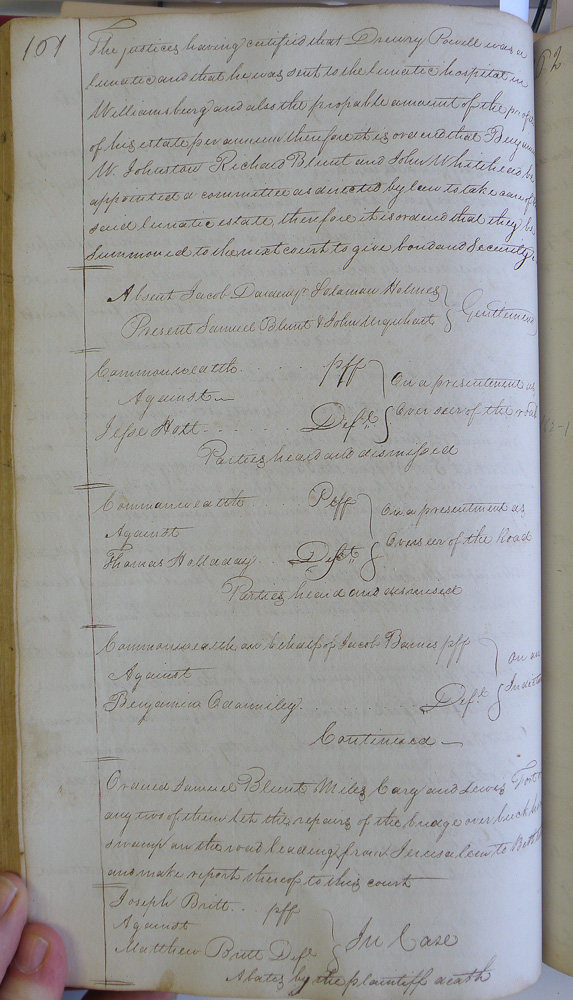 101
The justices having certified that Drewry Powell was a
lunatic and that he was sent to the lunatic hospital in
Williamsburg and also the propable amount of the
of his estate per annum therefore it is ordered that
W. Johnston Richard Blunt and John Whitehead be
appointed a committee as directed by law to take care of
said lunatic estate, therefore it is ordered that they be
Summoned to the next court to give bond and Security
Absent Jacob Solomon Holmes
Present Samuel Blunt & John Urquhart } Gentlemen
Commonwealth pff
Against
Jesse Holt Deft } On a presentment as
Over seer of the road
Parties heard and dismissed
Commonwealth Pff
Against
Thomas Holladay Deft } On a presentment as
Overseer of the Road
Parties heard and dismissed
Commonwealth on behalf of Jacob Barnes pff
Against
Benjamin Deft } On an
Continued
Ordered Samuel Blunt Miles Cary and Lewis
any two of them let the repairs of the bridge over
swamp on the road leading from Jerusalem to
and make report thereof to this court
Joseph Britt pff
Against
Matthew Britt Deft } In Case
Abates by the plaintiff death